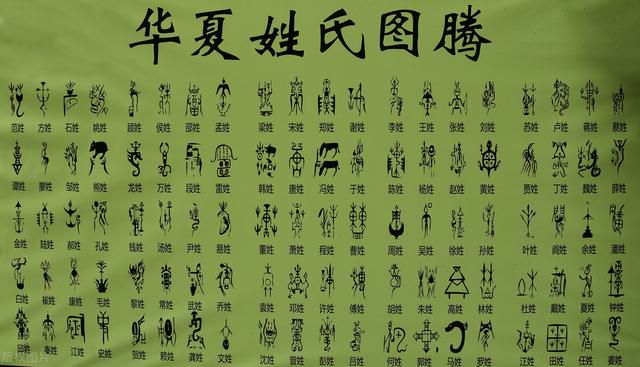 华夏姓氏图腾
范姓 方姓 石姓 姚姓 顾姓 侯姓 邵姓 孟姓 梁姓 宋姓 郑姓 谢姓 李姓 王姓 张姓 刘姓 苏姓 卢姓 蒋姓 蔡姓
谭姓 廖姓 邹姓 熊姓 龙姓 万姓 段姓 雷姓 韩姓 唐姓 冯姓 于姓 陈姓 杨姓 赵姓 黄姓 贾姓 丁姓 魏姓 薛姓
金姓 陆姓 郝姓 孔姓 钱姓 汤姓 尹姓 易姓 董姓 萧姓 程姓 曹姓 周姓 吴姓 徐姓 孙姓 叶姓 阎姓 余姓 潘姓
白姓 崔姓 康姓 毛姓 黎姓 常姓 武姓 乔姓 袁姓 邓姓 许姓 傅姓 胡姓 朱姓 高姓 林姓 杜姓 戴姓 夏姓 钟姓
秦姓 江姓 史姓 贺姓 赖姓 龚姓 文姓 沈姓 曾姓 彭姓 吕姓 何姓 郭姓 马姓 罗姓 汪姓 田姓 任姓 姜姓
版权图片